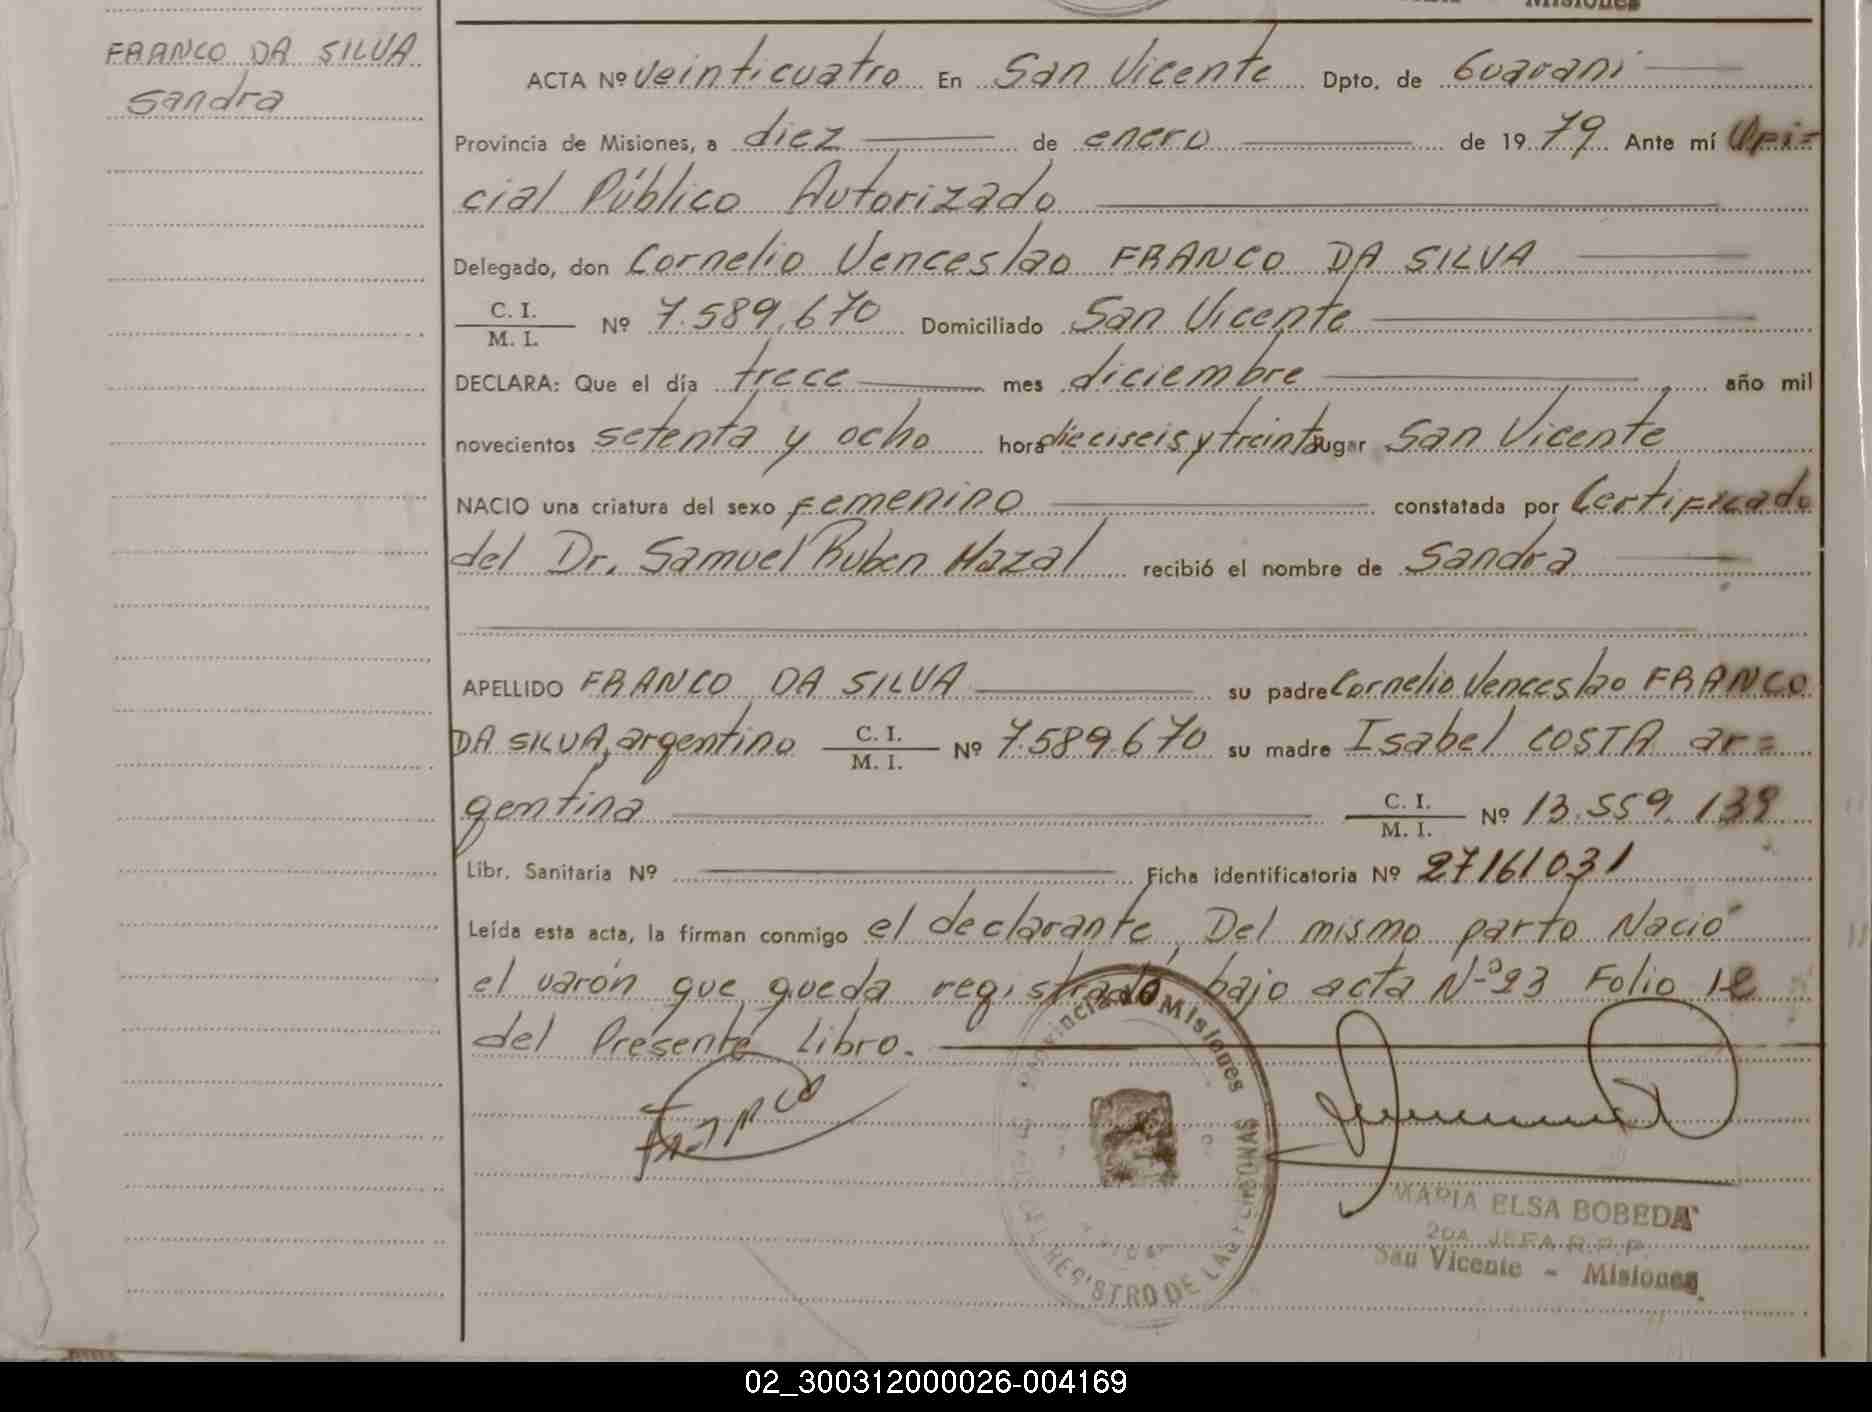 Misiones
FRANCO DA SILVA
Sandra
ACTA Nº veinticuatro En San Vicente Dpto. de Guaraní
Provincia de Misiones, a diez de enero de 1979 Ante mí Ofi=
cial Público Autorizado
Delegado, don Cornelio Venceslao FRANCO DA SILVA
C. I.
M. I. Nº 7.589.670 Domiciliado San Vicente
DECLARA: Que el día trece mes diciembre año mil
novecientos setenta y ocho hora dieciseis y treinta lugar San Vicente
NACIO una criatura del sexo femenino constatada por Certificado
del Dr. Samuel Ruben Hazal recibió el nombre de Sandra
APELLIDO FRANCO DA SILVA su padre Cornelio Venceslao FRANCO
DA SILVA, argentino C. I. M. I. Nº 7.589.670 su madre Isabel COSTA ar=
gentina C. I. M. I. Nº 13.559.139
Libr. Sanitaria Nº Ficha identificatoria Nº 27161031
Leída esta acta, la firman conmigo el declarante. Del mismo parto Nació
el varón que queda registrado bajo acta Nº 23 Folio 12
del Presente Libro.
Franco
Provincia de Misiones
DEL REGISTRO DE LAS PERSONAS
MARIA ELSA BOBEDA
2DA JEFA R.P.P.
San Vicente - Misiones
02_300312000026-004169